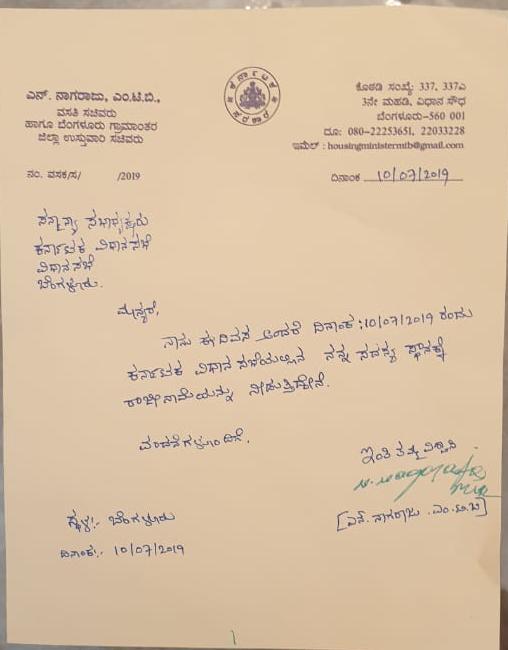 ಕರ್ನಾಟಕ ಸರ್ಕಾರ
ಎನ್. ನಾಗರಾಜು, ಎಂ.ಟಿ.ಬಿ.,
ವಸತಿ ಸಚಿವರು
ಹಾಗೂ ಬೆಂಗಳೂರು ಗ್ರಾಮಾಂತರ
ಜಿಲ್ಲಾ ಉಸ್ತುವಾರಿ ಸಚಿವರು
ಕೊಠಡಿ ಸಂಖ್ಯೆ: 337, 337ಎ
3ನೇ ಮಹಡಿ, ವಿಧಾನ ಸೌಧ
ಬೆಂಗಳೂರು-560 001
ದೂ: 080-22253651, 22033228
ಇಮೇಲ್ : housingministermtb@gmail.com
ನಂ. ವಸಕ/ಸ/ /2019
ದಿನಾಂಕ 10/07/2019
ಸನ್ಮಾನ್ಯ ಸಭಾಧ್ಯಕ್ಷರು
ಕರ್ನಾಟಕ ವಿಧಾನಸಭೆ
ವಿಧಾನಸಭೆ
ಬೆಂಗಳೂರು.
ಮಾನ್ಯರೇ,
ನಾನು ಈ ದಿವಸ ಅಂದರೆ ದಿನಾಂಕ :10/07/2019 ರಂದು
ಕರ್ನಾಟಕ ವಿಧಾನ ಸಭೆಯಲ್ಲಿನ ನನ್ನ ಸದಸ್ಯ ಸ್ಥಾನಕ್ಕೆ
ರಾಜೀನಾಮೆಯನ್ನು ನೀಡುತ್ತಿದ್ದೇನೆ.
ವಂದನೆಗಳೊಂದಿಗೆ.
ಇಂತಿ ತಮ್ಮ ವಿಶ್ವಾಸಿ
[ಎನ್. ನಾಗರಾಜು .ಎಂ.ಟಿ.ಬಿ]
ಸ್ಥಳ:- ಬೆಂಗಳೂರು
ದಿನಾಂಕ:- 10/07/2019